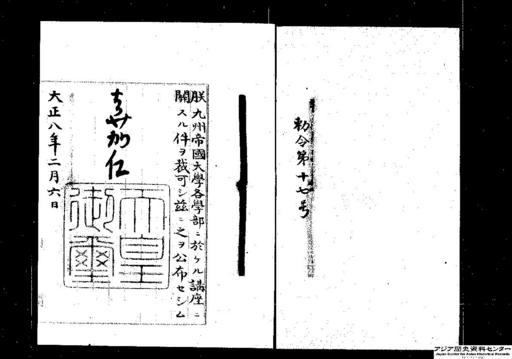 勅令第十七号
朕九州帝國大學各學部ニ於ケル講座ニ
關スル件ヲ裁可シ茲ニ之ヲ公布セシム
嘉仁
天皇
御璽
大正八年二月六日
アジア歴史資料センター
Japan Center for Asian Historical Records